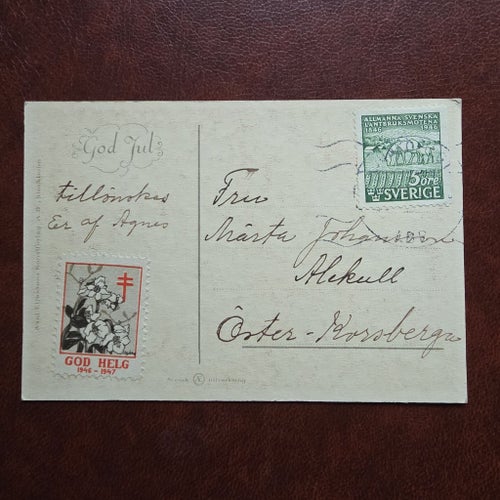 God Jul
tillönskas
Er af Agnes
GOD HELG
1946 - 1947
ALLMÄNNA SVENSKA
LANTBRUKSMÖTENA
1846 1946
5 öre
SVERIGE
Fru
Märta Johansson
Alekull
Öster-Korsberga
Axel Eliassons Konstförlag A.-B. Stockholm
Svensk tillverkning